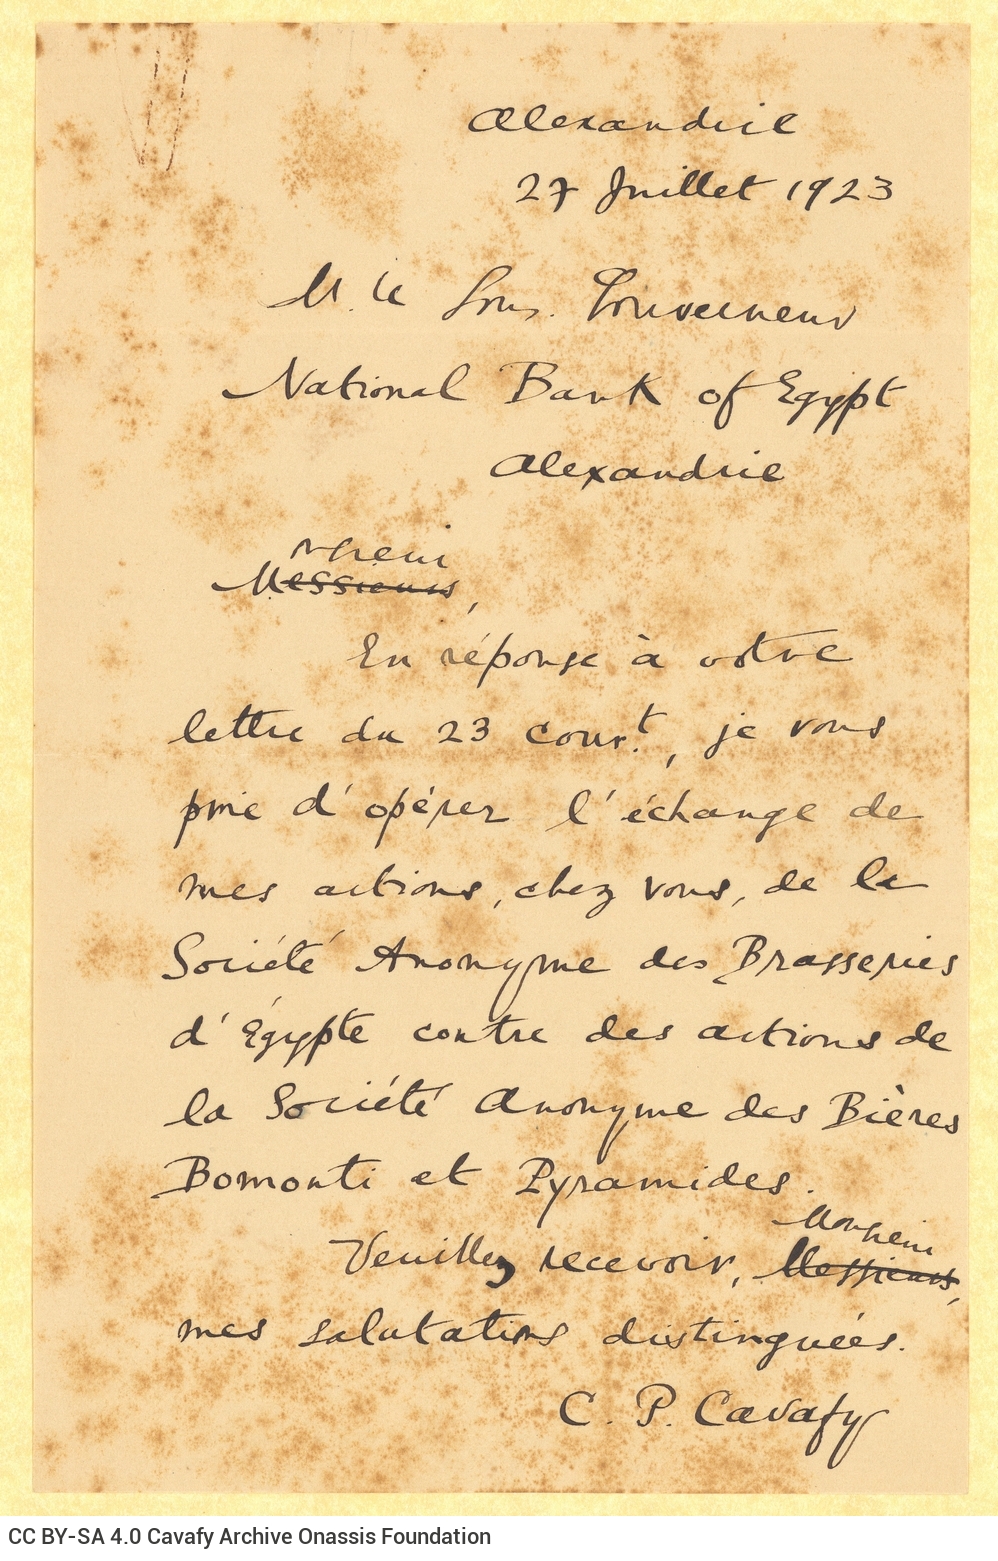 Alexandrie
27 Juillet 1923
M. le Sous. Gouverneur
National Bank of Egypt
Alexandrie
nsieur
Messieurs,
En réponse à votre
lettre du 23 cour.t, je vous
prie d'opérer l'échange de
mes actions, chez vous, de la
Société Anonyme des Brasseries
d'Égypte contre des actions de
la Société Anonyme des Bières
Bomonti et Pyramides.
Monsieur
Veuillez recevoir, Messieurs,
mes salutations distinguées.
C. P. Cavafy
CC BY-SA 4.0 Cavafy Archive Onassis Foundation